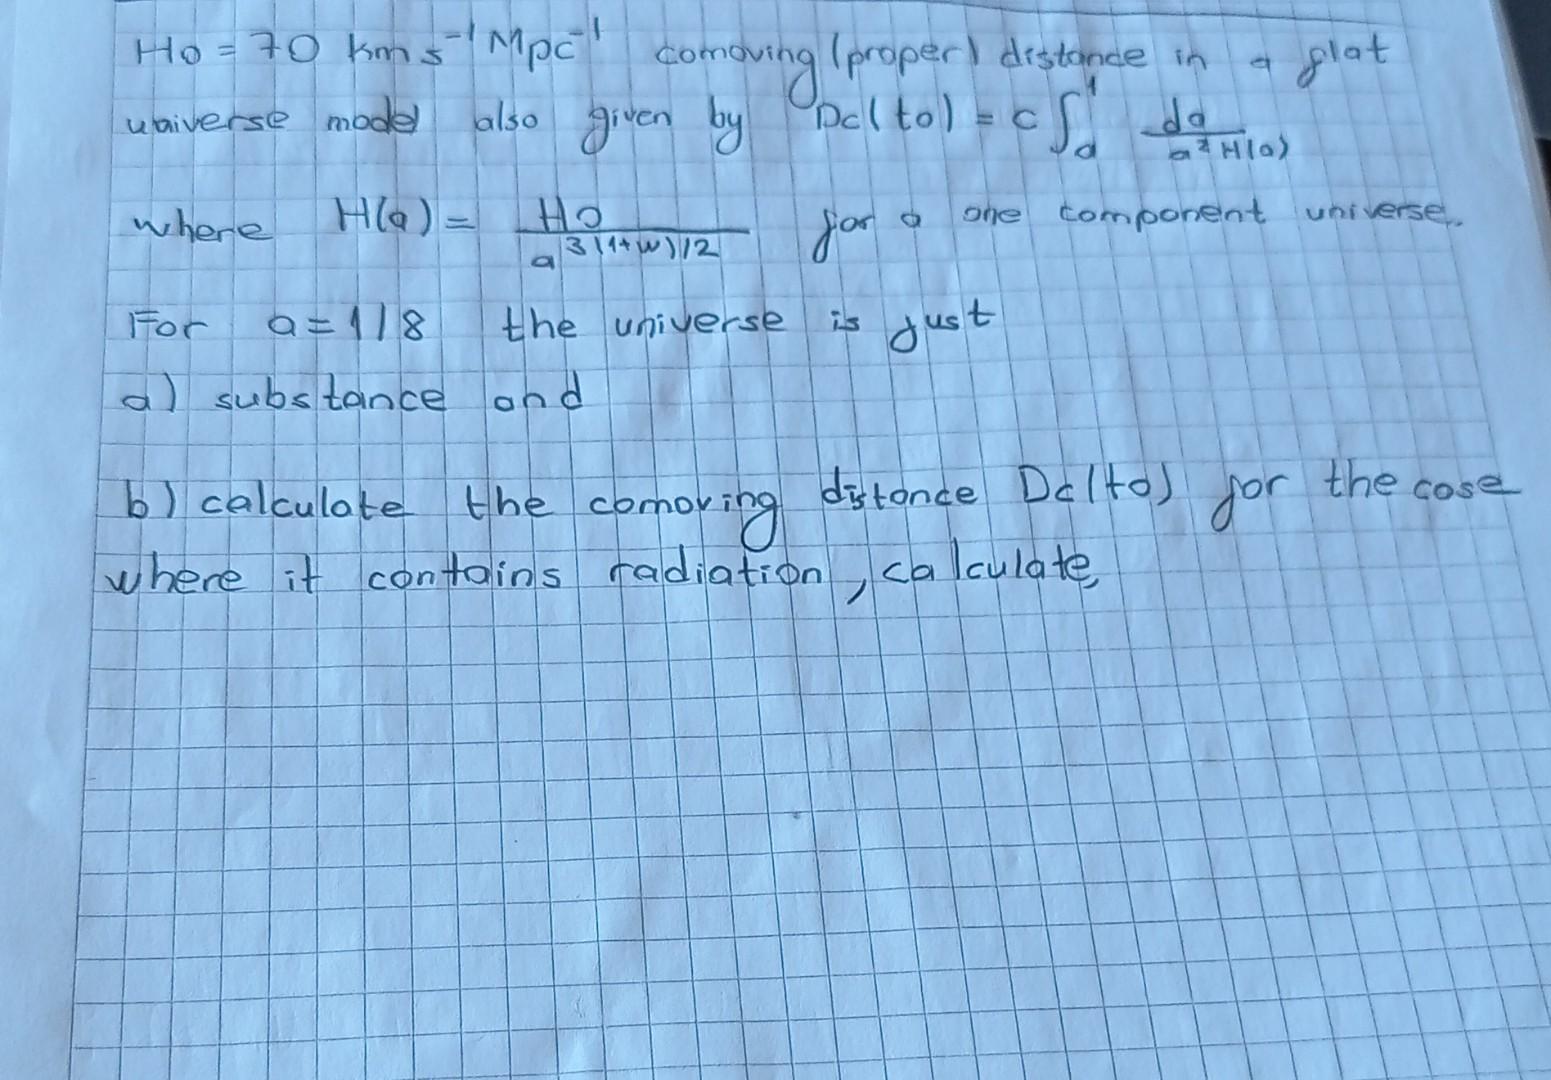 Ho = 70 km s⁻¹ Mpc⁻¹ comoving (proper) distance in a flat
universe model also given by Dc(to) = c ∫_a^1 da / a² H(a)
where H(a) = Ho / a^3(1+w)/2 for a one component universe.
For a = 1/8 the universe is just
a) substance and
b) calculate the comoving distance Dc(to) for the case
where it contains radiation, calculate,